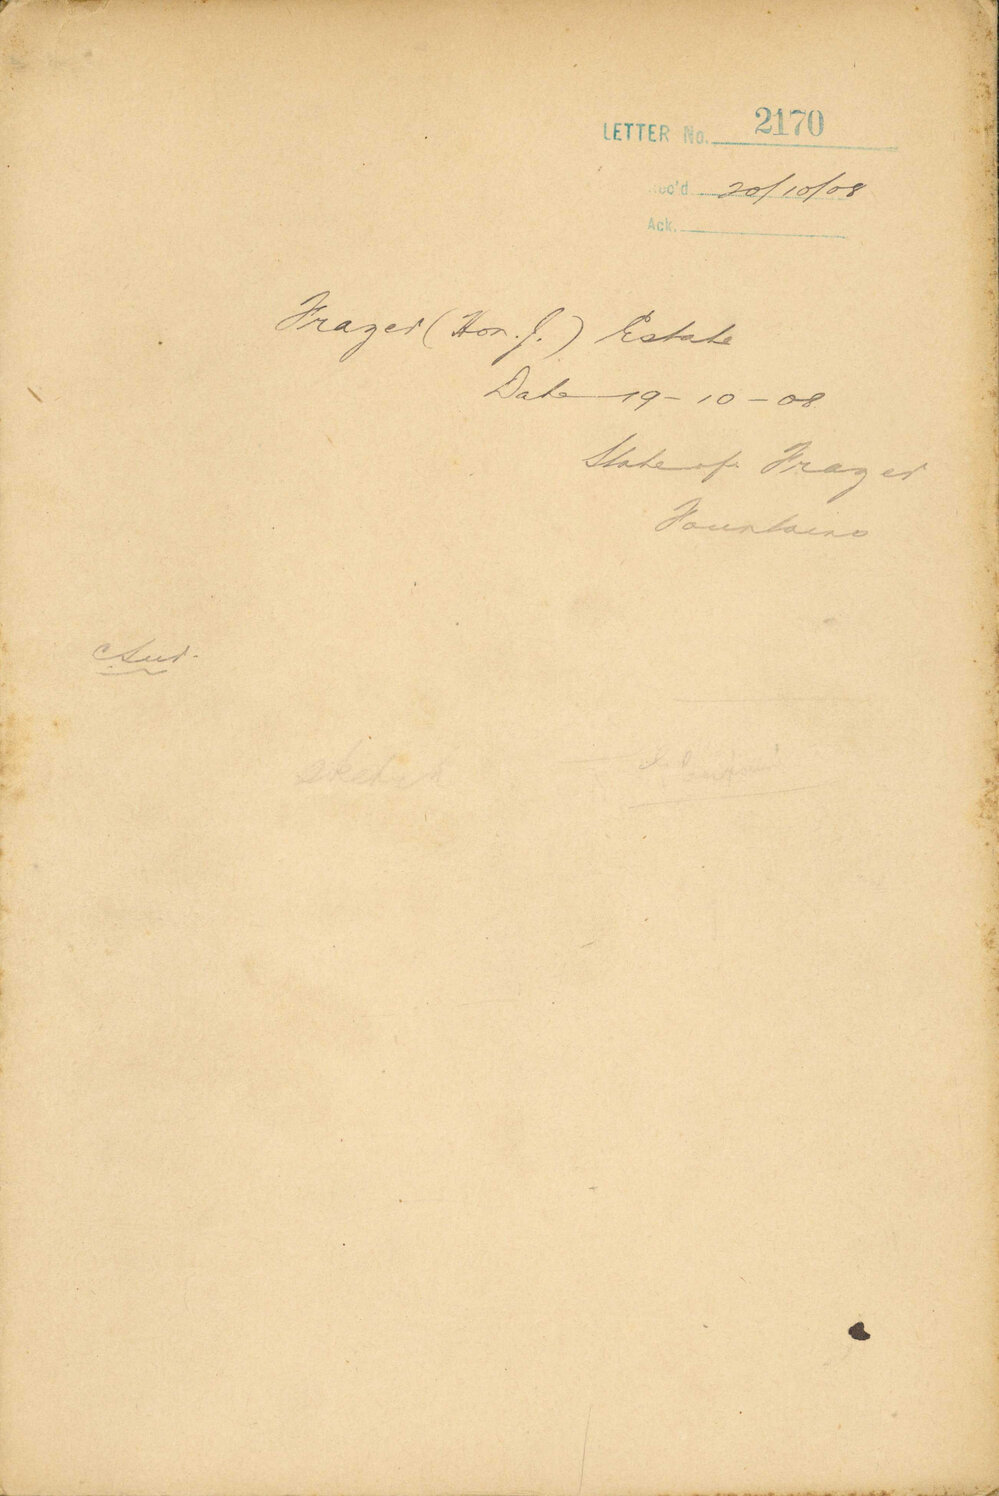 LETTER No. 2170
Rec'd 20/10/08
Ack.
Frazer (Hon. J.) Estate
Date 19-10-08
State of Frazer
Fountains